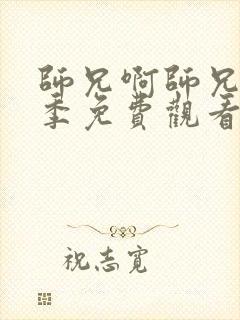 師兄啊師兄
季免費觀看
祝志寬